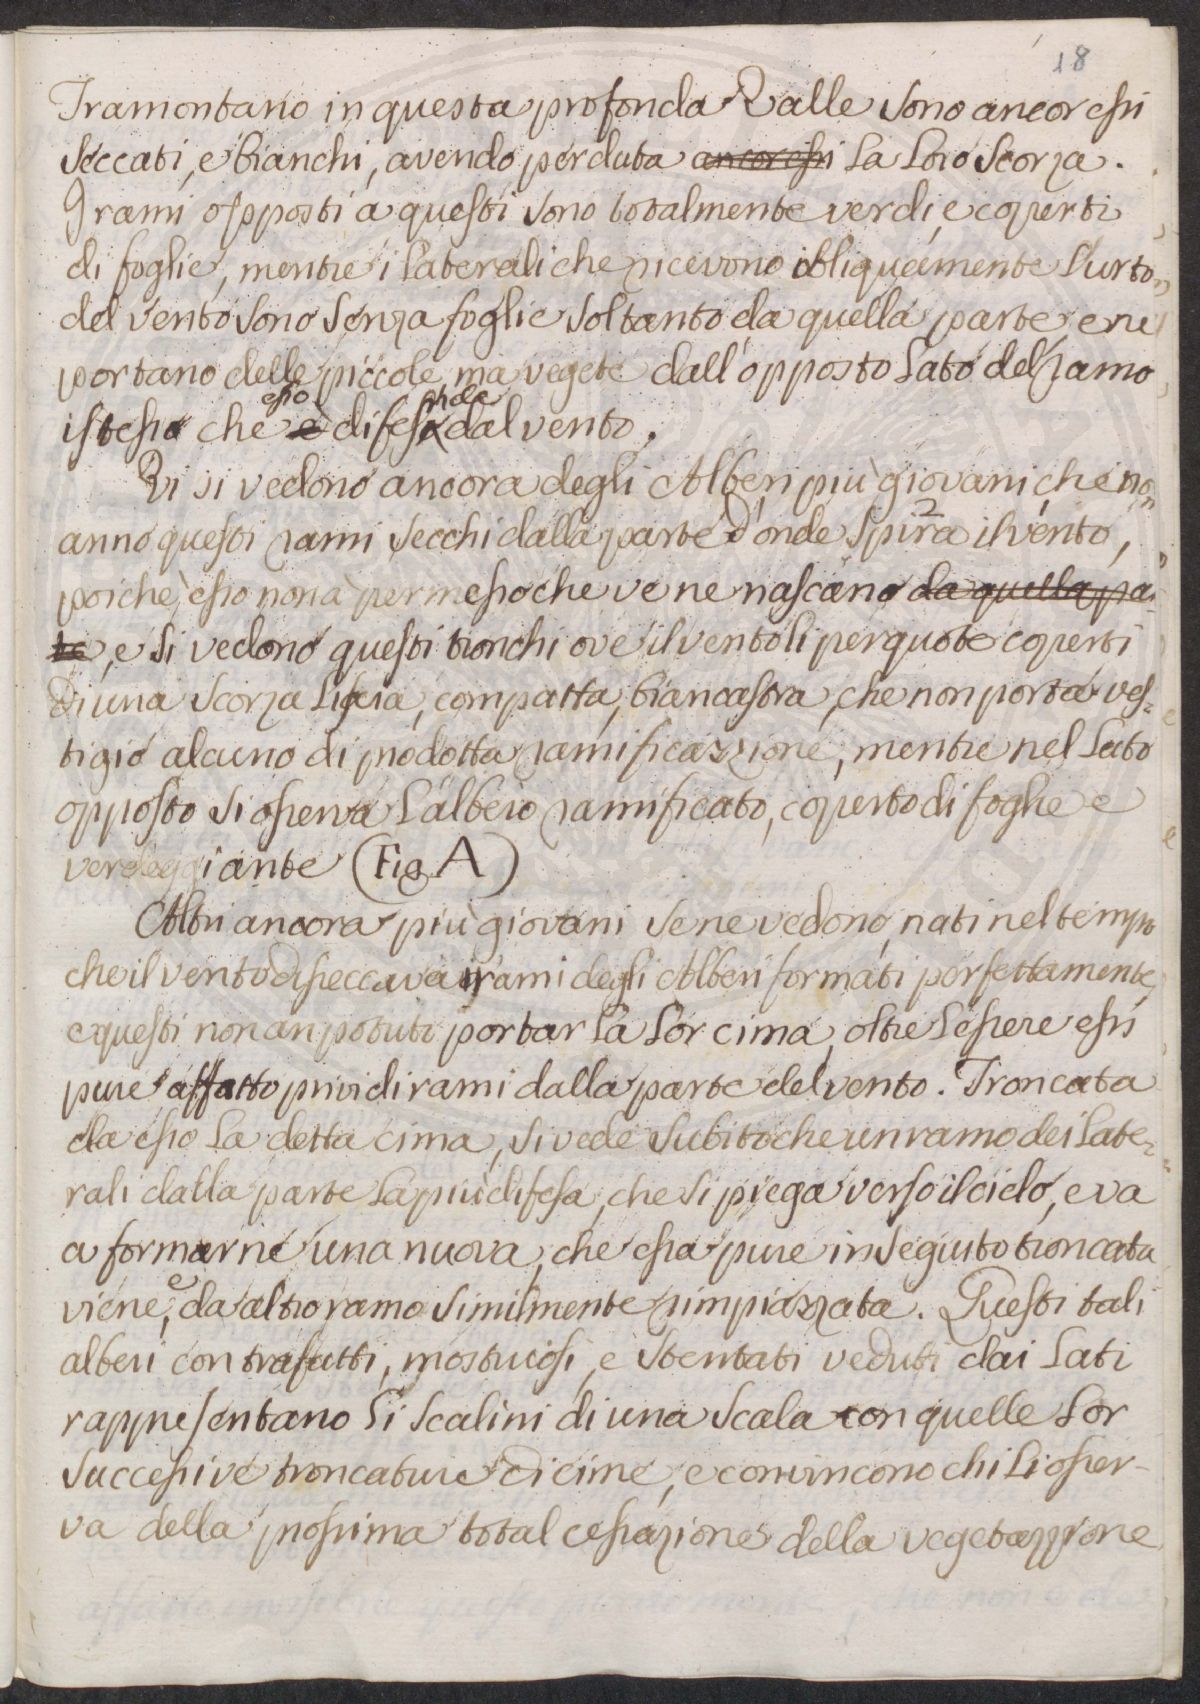 18
Tramontano in questa profonda Valle sono ancor essi
seccati, e bianchi, avendo perduta ancor essi la loro scorza.
I rami opposti a questi sono totalmente verdi, e coperti
di foglie, mentre i laterali che ricevono obliquamente l'urto
del vento sono senza foglie soltanto da quella parte e ne
portano delle piccole, ma vegete dall'opposto lato del ramo
istesso che è difeso dal vento.
Vi si vedono ancora degli Alberi più giovani, che non
anno questi rami secchi dalla parte d'onde spira il vento,
poichè esso non à permesso che ve ne nascano da quella par-
te, e si vedono questi tronchi ove il vento li perquote coperti
di una scorza liscia, compatta, biancastra, che non porta ves-
tigio alcuno di prodotta ramificazzione, mentre nel lato
opposto si osserva l'albero ramificato, coperto di foglie e
verdeggiante (Fig. A)
Altri ancora più giovani se ne vedono, nati nel tempo
che il vento disseccava i rami degli Alberi formati perfettamente,
e questi non an potuto portar la lor cima, oltre l'essere essi
pure affatto privi di rami dalla parte del vento. Troncata
da esso la detta cima, si vede subito che un ramo dei late-
rali dalla parte la più difesa, che si piega verso il cielo, e va
a formarne una nuova, che essa pure in seguito troncata
viene, e da altro ramo similmente rimpiazzata. Questi tali
alberi contrafatti, mostruosi, e stentati veduti dai lati
rappresentano li scalini di una scala con quelle lor
successive troncature di cime, e convincono chi li osser-
va della prossima total cessazione della vegetazzione